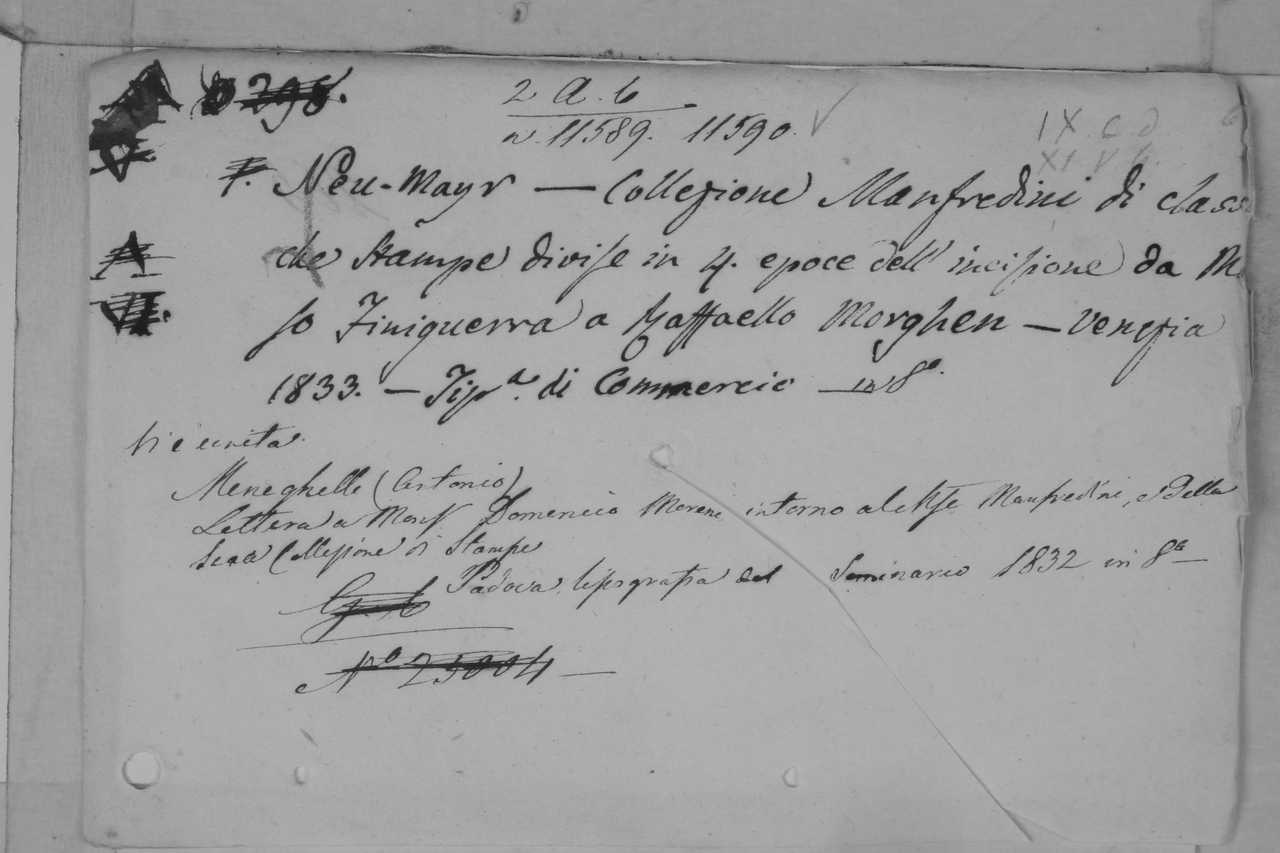 2 A. 6
n. 11589. 11590.
IX. C. d
Neu-Mayr — Collezione Manfredini di class
che Stampe divise in 4. epoce dell' incisione da M
so Finiguerra a Raffaello Morghen — Venezia
1833. — Tip.a di Commercio — in 8o.
Vi è unita
Meneghelli (Antonio)
Lettera a Monsr Domenico Moreni intorno al Mse Manfredini, e della
sua Collezione di Stampe
Padova, tipografia del Seminario 1832 in 8o —
No 25004 —